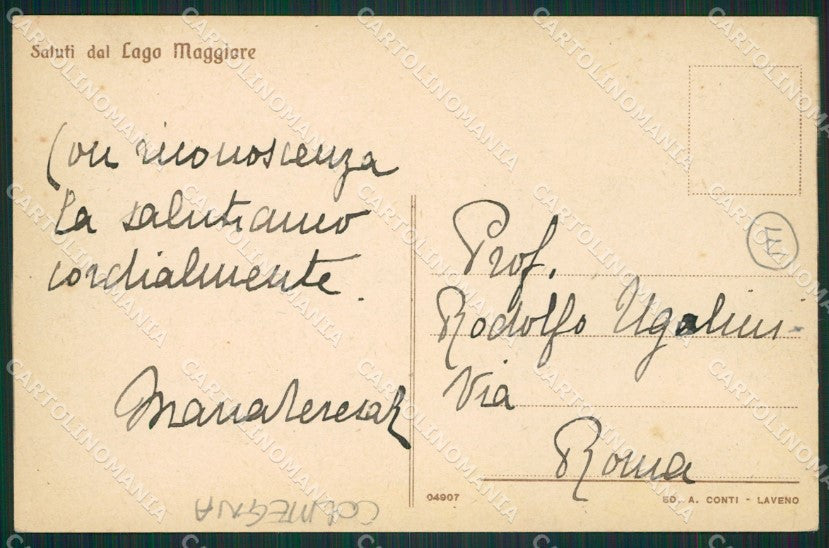 Saluti dal Lago Maggiore
Con riconoscenza
la salutiamo
cordialmente.
Mariateresa
Prof.
Rodolfo Ugolini
Via
Roma
04907
ED. A. CONTI - LAVENO
COLMEGNA
CARTOLINOMANIA